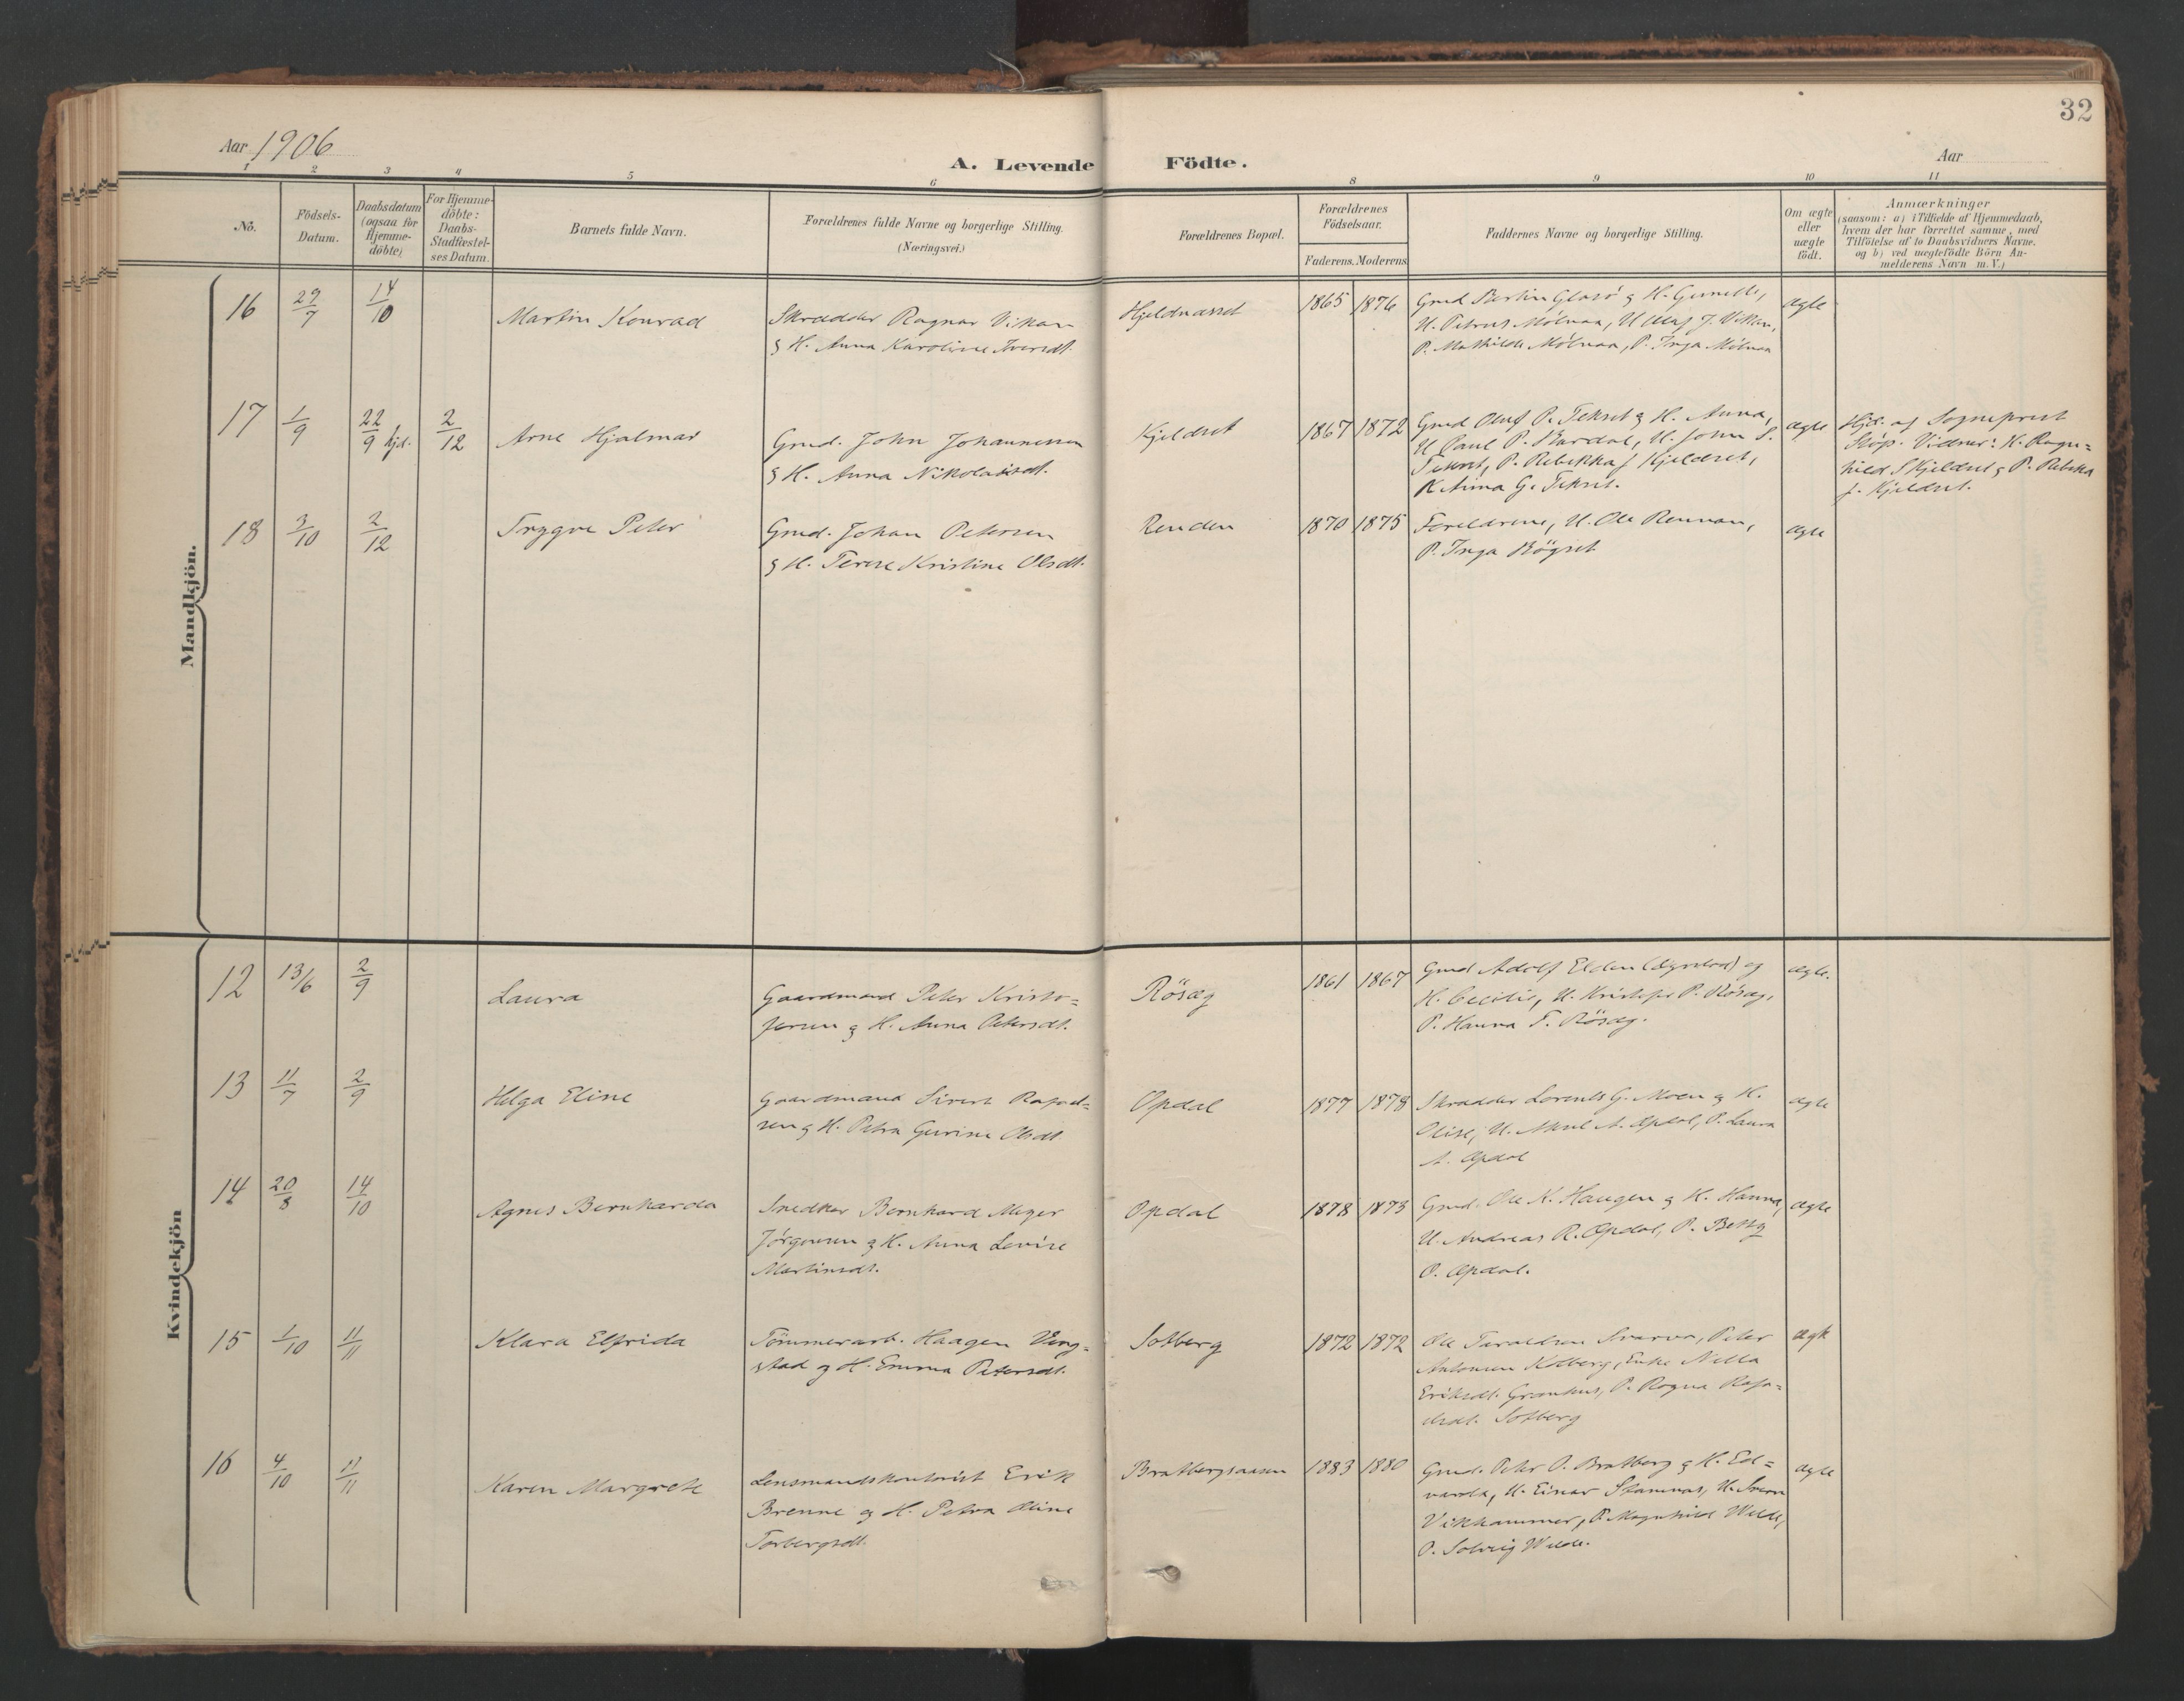 32
Aar 1906
A. Levende Födte.
Aar
1 2 3 4 5 6 8 9 10 11
No.
Födsels-
Datum.
Daabsdatum
(ogsaa for
Hjemme-
döbte)
For Hjemme-
döbte:
Daabs-
Stadfæstel-
ses Datum.
Barnets fulde Navn.
Forældrenes fulde Navne og borgerlige Stilling.
(Næringsvei.)
Forældrenes Bopæl.
Forældrenes
Födselsaar.
Faderens. Moderens
Faddernes Navne og borgerlige Stilling.
Om ægte
eller
uægte
födt.
Anmærkninger
(saasom: a) i Tilfælde af Hjemmedaab,
hvem der har forrettet samme, med
Tilföielse af to Daabsvidners Navne.
og b) ved uægtefödte Börn An-
melderens Navn m. V.)
Mandkjön.
16 29/7 14/10 Martin Konrad
Skrædder Ragnar Vikan
& H. Anna Karoline Iversdt.
Hjeldnasset 1865 1876
Gmd Glasö & H.
U. Petrus Mölnaa, U. J. Vikan,
P. Mathilde Mölnaa, P. Inga Mölnaa
ægte
17 1/9 22/9 hjd. 2/12 Arne Hjalmar
Gmd. John Johannessen
& H. Anna Nikolaisdt.
Kjeldset 1867 1872
Gmd Oluf P. Tekset & H. Anna,
U Paul P. Bardal, U. John P.
Tekset, P. Rebekka J Kjeldset,
K Anna G. Tekset.
ægte
Hjd. af Sogneprest
Vidner: K. Ragn=
hild S Kjeldset & P. Rebekka
J. Kjeldset.
18 3/10 2/12 Trygve Peter
Gmd. Johan Petersen
& H. Terese Kristine Olsdt.
Renden 1870 1875
Foreldrene, U. Ole Rennan,
P. Inga Bögset
ægte
Kvindekjön
12 13/6 2/9 Laura
Gaardmand Peter Kristo=
fersen & H. Anna Petersdt.
Rösæg 1861 1867
Gmd Adolf Elden og
H. Cecilie, U. Kristofer P. Rösæg,
P. Hanna T. Rösæg.
ægte.
13 11/7 2/9 Helga Eline
Gaardmand Sivert Rafael=
sen & H. Petra Gurine Olsdt
Opdal 1877 1878
Skrædder Lorents G. Moen & H.
Olise, U. A. Opdal, P. Laura
A. Opdal
ægte
14 20/8 14/10 Agnes Bernharda
Snedker Bernhard Meyer
Jörgensen & H. Anna Levise
Martinsdt.
Opdal 1878 1873
Gmd. Ole K. Haugen & H. Hanna,
U. Andreas R. Opdal, P. Betsy
O. Opdal.
ægte
15 1/10 11/11 Klara Elfrida
Tömmerarb. Haagen Veng=
stad og H. Emma Petersdt.
Solberg 1872 1872
Ole Taraldsen Svarva, Peter
Antonsen Kolberg, Enke Nella
Eriksdt. Granhus, P. Ragna Rafa=
elsdt. Solberg
ægte
16 4/10 11/11 Karen Margrete
Lensmandskontorist Erik
Brenne og H. Petra Oline
Torbergsdt.
Bratbergsaasen 1883 1880
Gmd. Peter O. Bratberg & H. Ed=
varda, U. Einar Stamnes, U. Svein
Vikhammer, P. Magnhild Welde,
P. Solveig Welde.
ægte